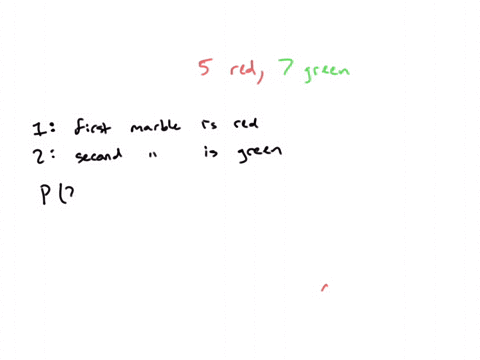 5 red, 7 green
1: first marble is red
2: second " is green
P(2